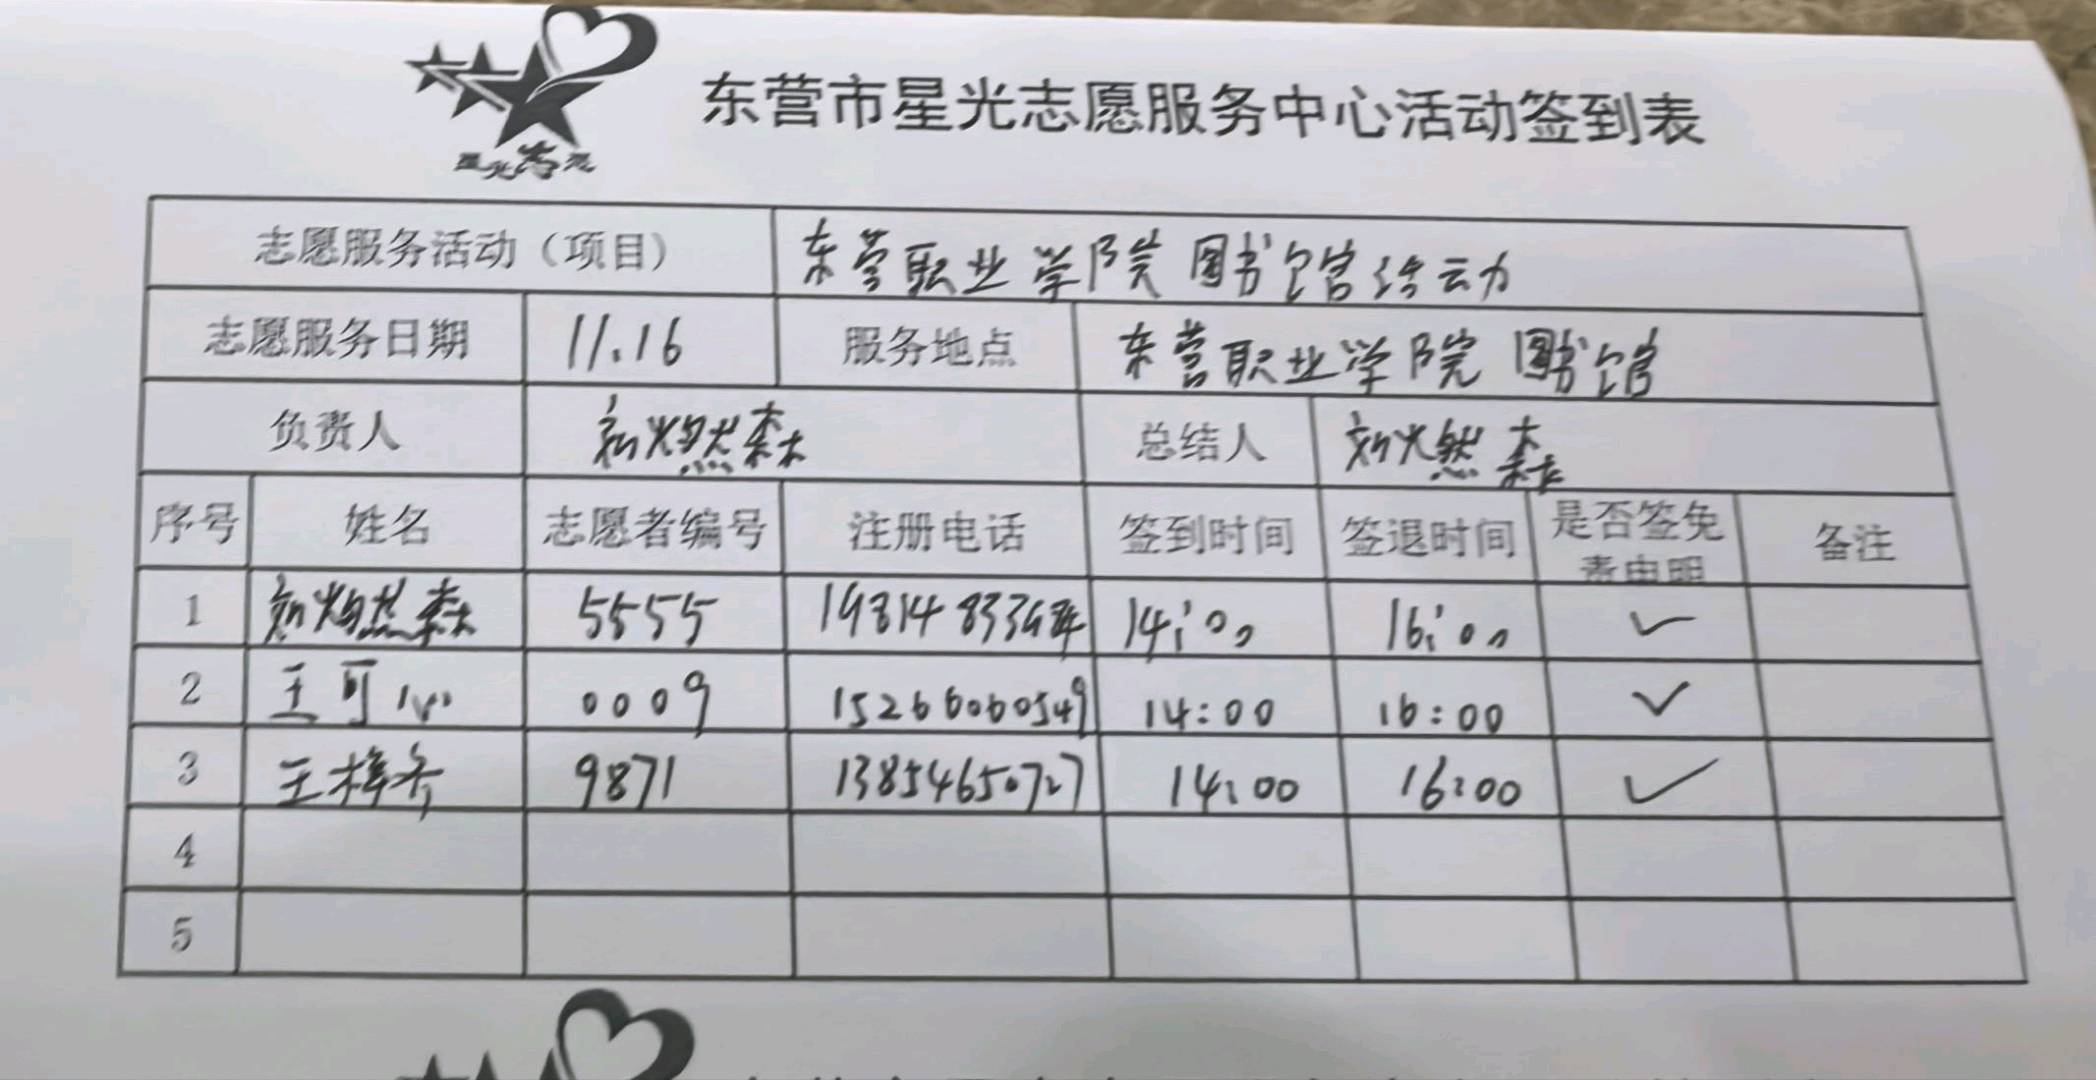 星光志愿
东营市星光志愿服务中心活动签到表
志愿服务活动（项目） 东营职业学院 图书馆活动
志愿服务日期 11.16 服务地点 东营职业学院 图书馆
负责人 刘燃森 总结人 刘燃森
序号 姓名 志愿者编号 注册电话 签到时间 签退时间 是否签免责申明 备注
1 刘燃森 5555 14:00 16:00 ✓
2 王可心 0009 15266060549 14:00 16:00 ✓
3 王梓齐 9871 13854650727 14:00 16:00 ✓
4
5